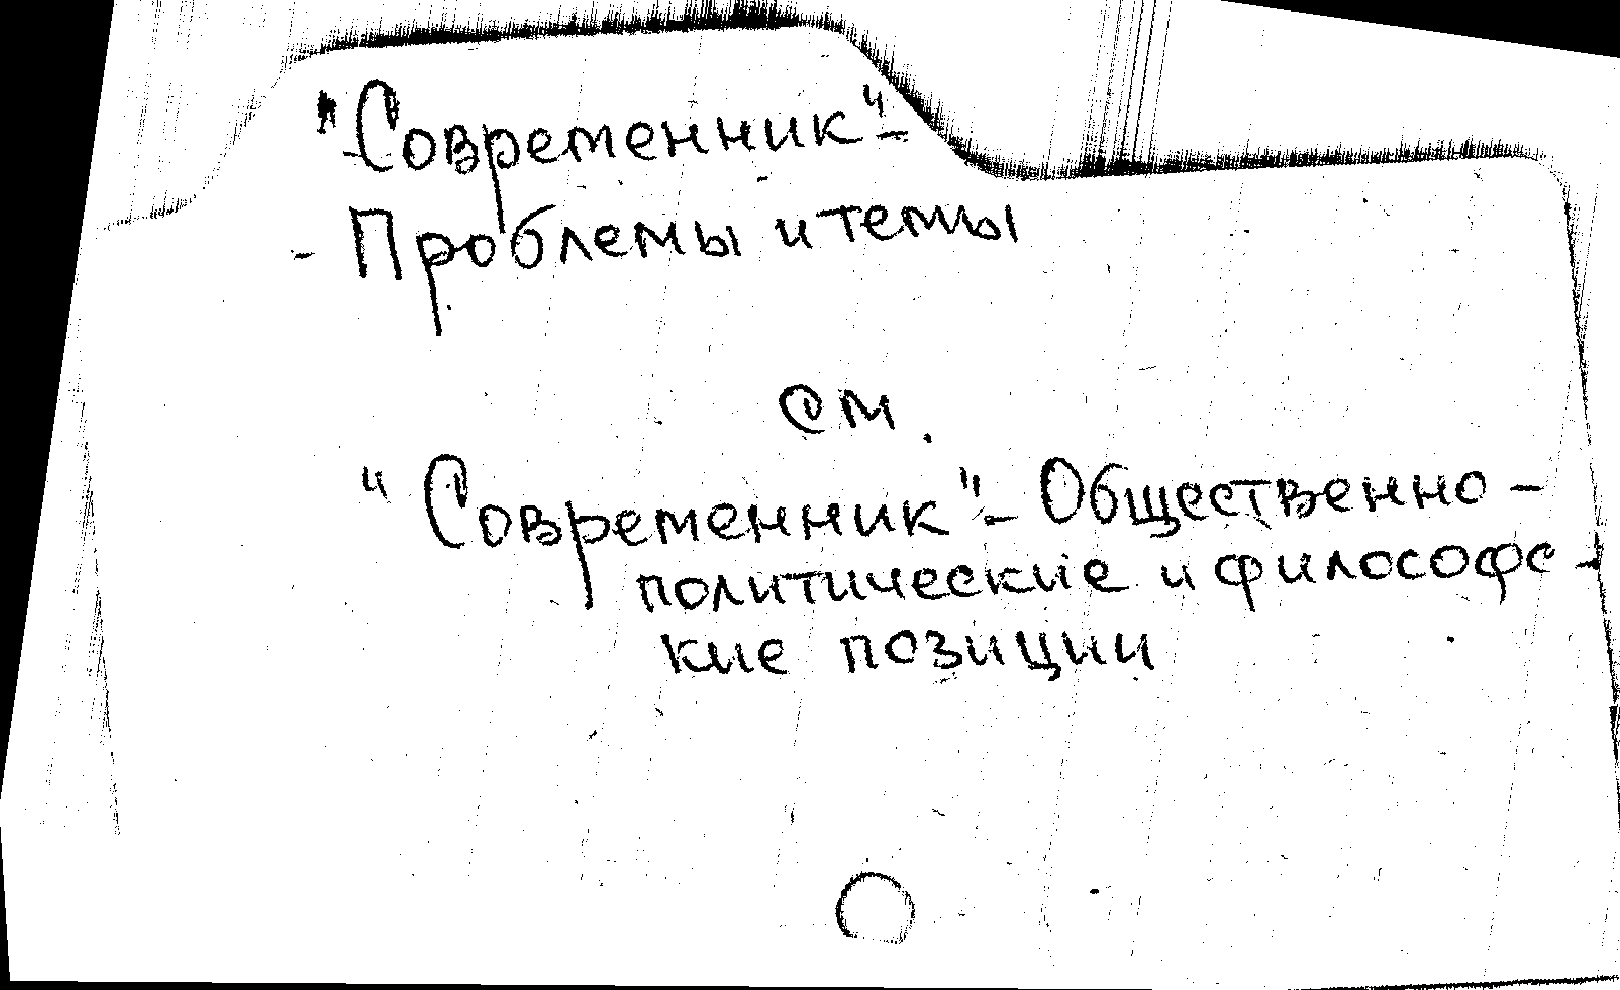 "Современник" -
- Проблемы и темы
см.
"Современник" - Общественно -
политические и философс -
кие позиции